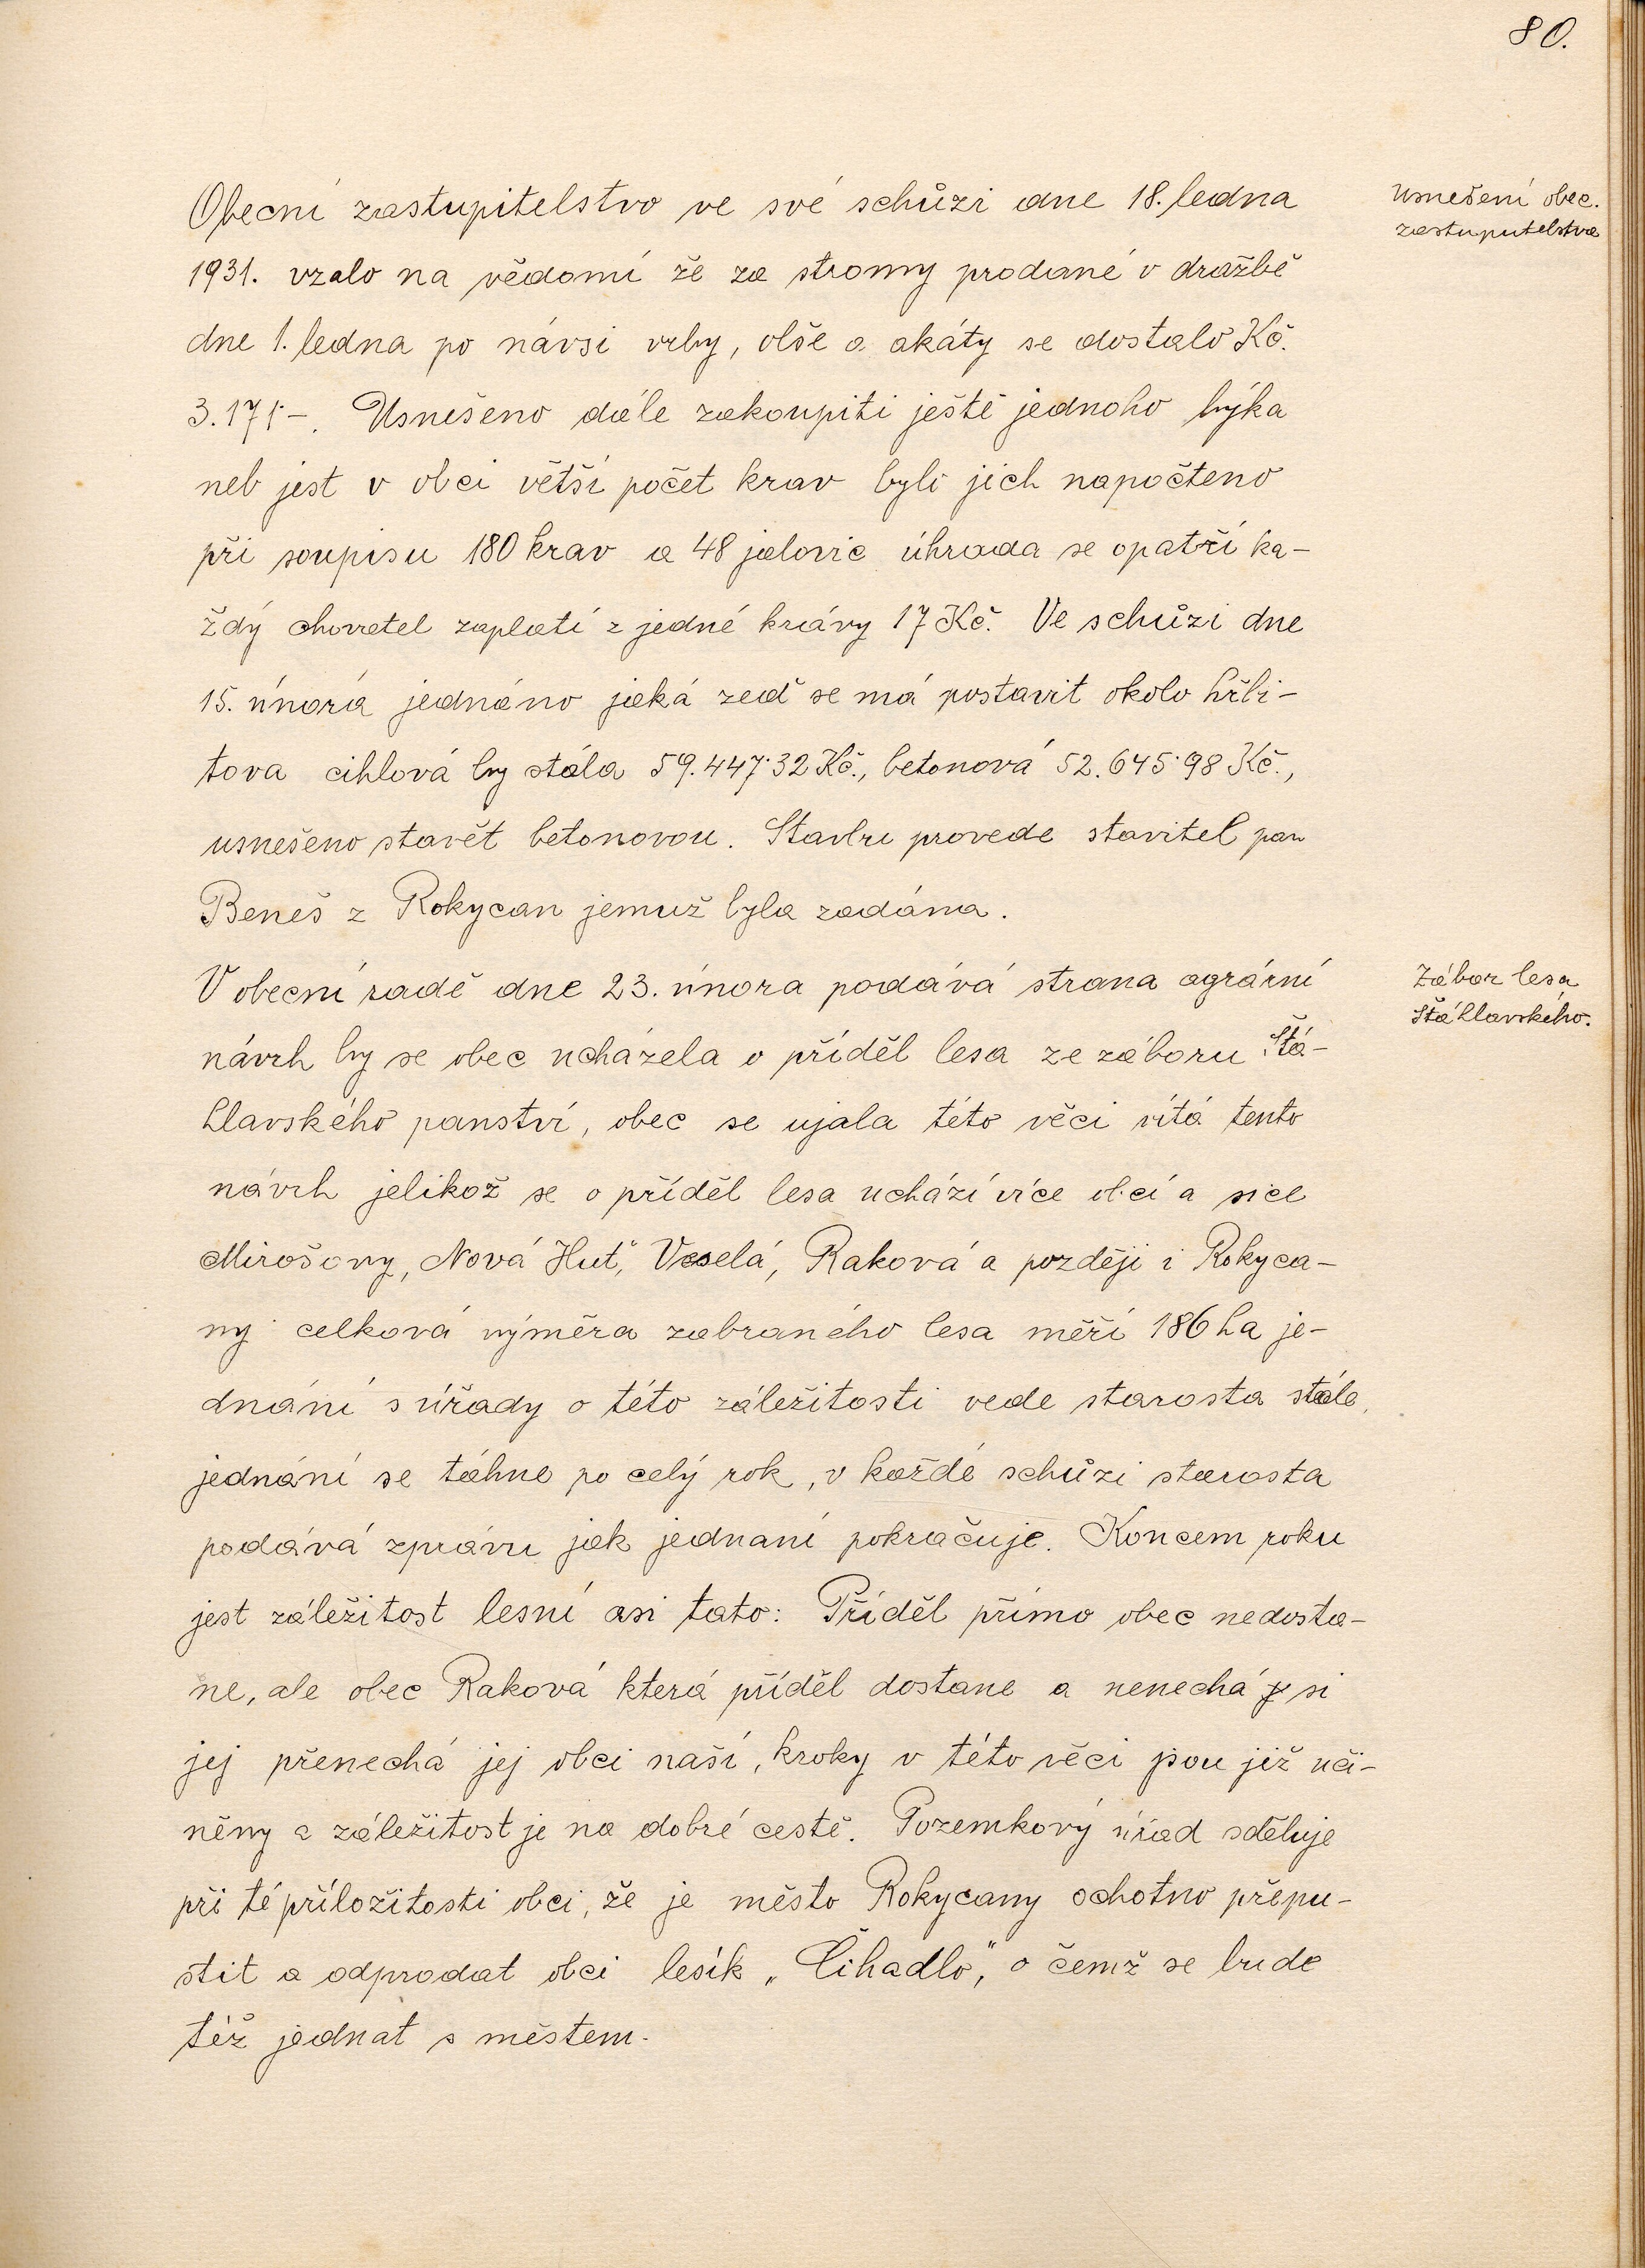 80.
Obecní zastupitelstvo ve své schůzi dne 18. ledna
Usnešení obec.
zastupitelstva
1931. vzalo na vědomí že za stromy prodané v dražbě
dne 1. ledna po návsi vrby, olše a akáty se dostalo Kč.
3.171·–. Usnešeno dále zakoupiti ještě jednoho býka
neb jest v obci větší počet krav bylo jich napočteno
při soupisu 180 krav a 48 jalovic úhrada se opatří ka-
ždý chovatel zaplatí z jedné krávy 17 Kč. Ve schůzi dne
15. února jednáno jaká zeď se má postavit okolo hřbi-
tova cihlová by stála 59.447·32 Kč., betonová 52.645·98 Kč.,
usnešeno stavět betonovou. Stavbu provede stavitel pan
Beneš z Rokycan jemuž byla zadána.
V obecní radě dne 23. února podává strana agrární
Zábor lesa
Šťáhlavského.
návrh by se obec ucházela o příděl lesa ze záboru Šťá-
hlavského panství, obec se ujala této věci vítá tento
návrh jelikož se o příděl lesa uchází více obcí a sice
Mirošovy, Nová Huť, Veselá, Raková a později i Rokyca-
ny celková výměra zabraného lesa měří 186 ha je-
dnání s úřady o této záležitosti vede starosta stále,
jednání se táhne po celý rok, v každé schůzi starosta
podává zprávu jak jednaní pokračuje. Koncem roku
jest záležitost lesní asi tato: Příděl přímo obec nedosta-
ne, ale obec Raková která příděl dostane a nenechá si
jej přenechá jej obci naší, kroky v této věci jsou již uči-
něny a záležitost je na dobré cestě. Pozemkový úřad sděluje
při té příložitosti obci, že je město Rokycany ochotno přepu-
stit a odprodat obci lesík „Čihadlo", o čemž se bude
též jednat s městem.